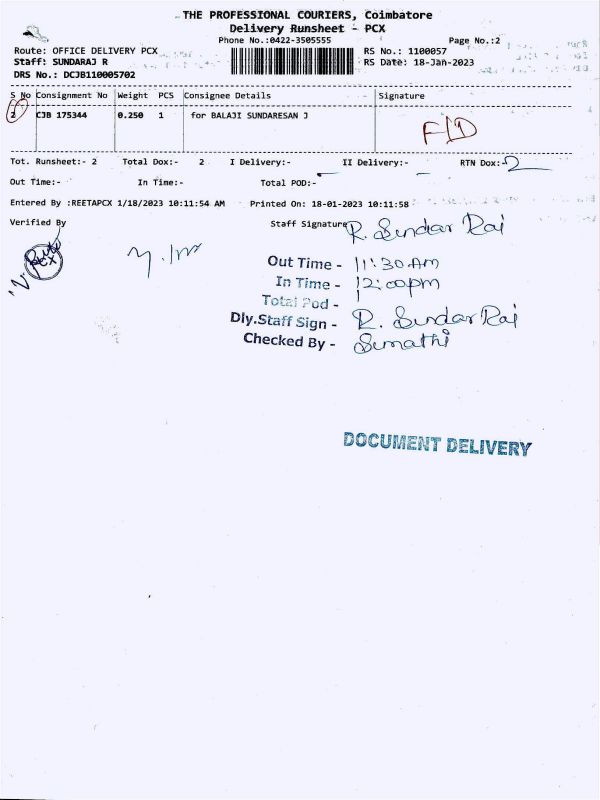 THE PROFESSIONAL COURIERS, Coimbatore
Delivery Runsheet - PCX
Phone No.:0422-3505555 Page No.:2
Route: OFFICE DELIVERY PCX RS No.: 1100057
Staff: SUNDARAJ R RS Date: 18-Jan-2023
DRS No.: DCJB110005702
S No Consignment No Weight PCS Consignee Details Signature
2 CJB 175344 0.250 1 for BALAJI SUNDARESAN J F/D
Tot. Runsheet:- 2 Total Dox:- 2 I Delivery:- II Delivery:- RTN Dox:- 2
Out Time:- In Time:- Total POD:-
Entered By :REETAPCX 1/18/2023 10:11:54 AM Printed On: 18-01-2023 10:11:58
Verified By Staff Signature R. Sundar Raj
Out Time - 11:30 AM
In Time - 12:00pm
Total Pod - 1
Dly.Staff Sign - R. Sundar Raj
Checked By - Sumathi
DOCUMENT DELIVERY